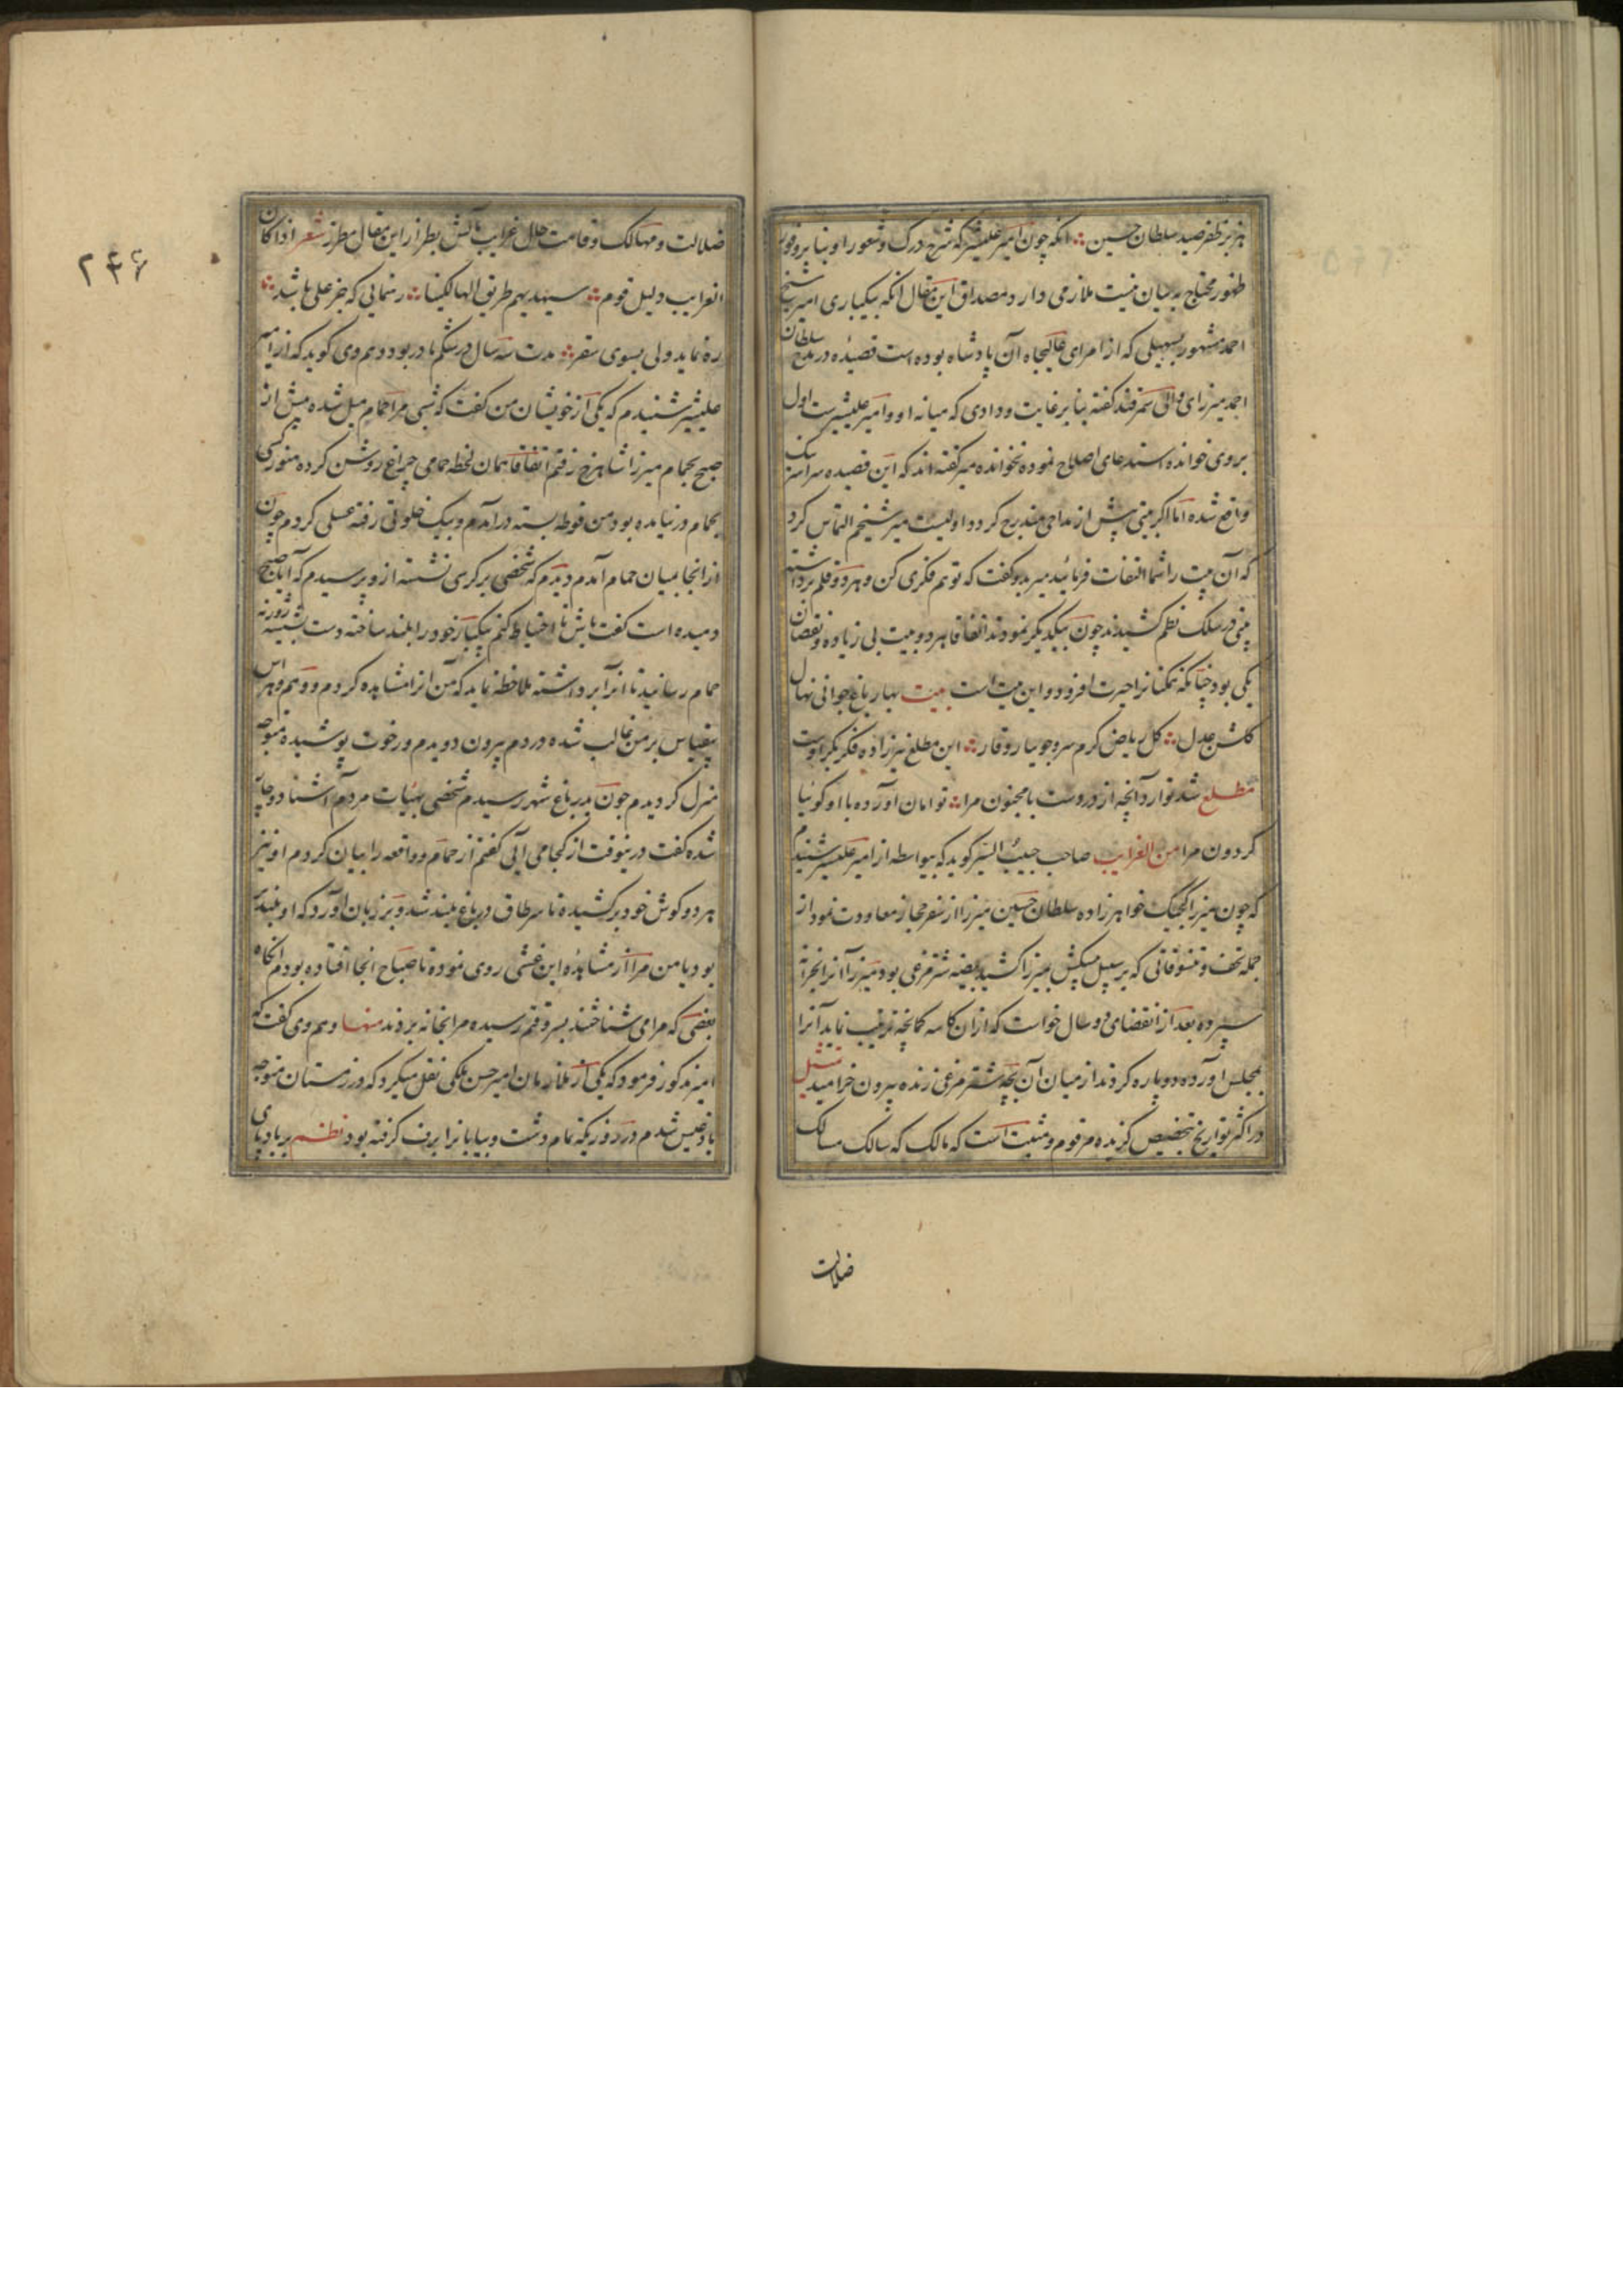 هزبر ظفر صید سلطان حسین ؞ آنکه چون امیر علیشیر که شرح درک و شعور او بنابر وفور
ظهور محتاج به بیان نیست ملازمی دارد و مصداق این مقال آنکه بیکباری امیر شیخ
احمد مشهور بسهیلی که از امرای عالیجاه آن پادشاه بوده است قصیده در مدح سلطان
احمد میرزای والی سمرقند گفته بنابر غایت ودادی که میانه او و امیر علیشیرست اول
بر وی خوانده استدعای اصلاح نموده نخوانده میر گفته‌اند که این قصیده سراسر نیک
واقع شده اما اگر بیتی پیش از مداحی مندرج کرد و اولیست میر شیخم التماس کرد
که آن بیت را شما التفات فرمائید میر بدو گفت که تو هم فکری کن و هر دو قلم برداشته
بیتی در سلک نظم کشیدند چون بیکدیگر نمودند اتفاقا هر دو بیت بی زیاده و نقصان
یکی بود چنانکه همکنانرا حیرت افزود و این بیت است بیت بهار باغ جوانی نهال
گلشن عدل ؞ گل ریاض کرم سرو جویبار وقار ؞ این مطلع نیز زاده فکر بکر اوست
مطلع شد توارد آنچه از دردست با مجنون مرا ؞ توامان آورده با او گوئیا
گردون مرا من الغرایب صاحب حبیب السیر گوید که بیواسطه از امیر علیشیر شنیدم
که چون میرزا کیجیک خواهرزاده سلطان حسین میرزا از سفر حجاز معاودت نمود از
جمله تحف و تنسوقاتی که بر سبیل پیشکش میرزا کشید بیضه شتر مرغی بود میرزا آنرا بخزانه
سپرده بعد از انقضای دو سال خواست که از ان کاسه کمانچه ترتیب نماید آنرا
بمجلس آورده دوپاره کردند از میان آن بچه شتر مرغی زنده بیرون خرامید تمثیل
در اکثر تواریخ بتخصیص گزیده مرقوم و مثبت است که مالک که سالک مسالک
ضلالت
۲۴۶
ضلالت و مهالک و قامت حلل غرایب مآلش بطراز این مقال مطرز شعر اذا کان
الغراب دلیل قوم ؞ سیهدیهم طریق الهالکینا ؞ رهنمایی که جز علی باشد ؞
ره نماید ولی بسوی سقر ؞ مدت سه سال در شکم مادر بود و هم وی گوید که از امیر
علیشیر شنیدم که یکی از خویشان من گفت که شبی مرا حمام میل شده پیش از
صبح بحمام میرزا شاهرخ رفتم اتفاقا همان لحظه حمامی چراغ روشن کرده هنوز کسی
بحمام در نیامده بود من فوطه بسته درآمدم و بیک خلوتی رفته غسلی کردم چون
از انجا بمیان حمام آمدم دیدم که شخصی بر کرسی نشسته از و پرسیدم که آیا صبح
دمیده است گفت باش تا احتیاط کنم بیکبار خود را بلند ساخته دست بشیشه روزنه
حمام رسانید تا انرا برداشته ملاحظه نماید که من آنرا مشاهده کردم و وهم و هراس
بیقیاس بر من غالب شده در دم بیرون دویدم و رخوت پوشیده متوجه
منزل گردیدم چون بدر باغ شهر رسیدم شخصی بهیأت مردم آشنا دوچار
شده گفت درینوقت از کجا می آیی گفتم از حمام و واقعه را بیان کردم او نیز
هر دو گوش خود برکشیده تا سر طاق در باغ بلند شد و بر زبان آورد که او بلندتر
بود یا من مرا از مشاهده این غشی روی نموده تا صباح انجا افتاده بودم انگاه
بعضی که مرا می شناختند بسر وقتم رسیده مرا بخانه بردند منها و هم وی گفت که
امیر مذکور فرمود که یکی از ملازمان امیر حسن ملکی نقل میکرد که در زمستان متوجه
بادغیس شدم در روزیکه تمام دشت و بیابانرا برف گرفته بود نظم بر بادپای